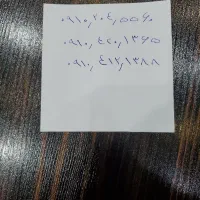 ۰۹۱۰,۲۰٤,۵۵۶۰
۰۹۱۰,٤۲۰,۱۳۶۵
۰۹۱۰,٤۱۲,۱۳۸۸